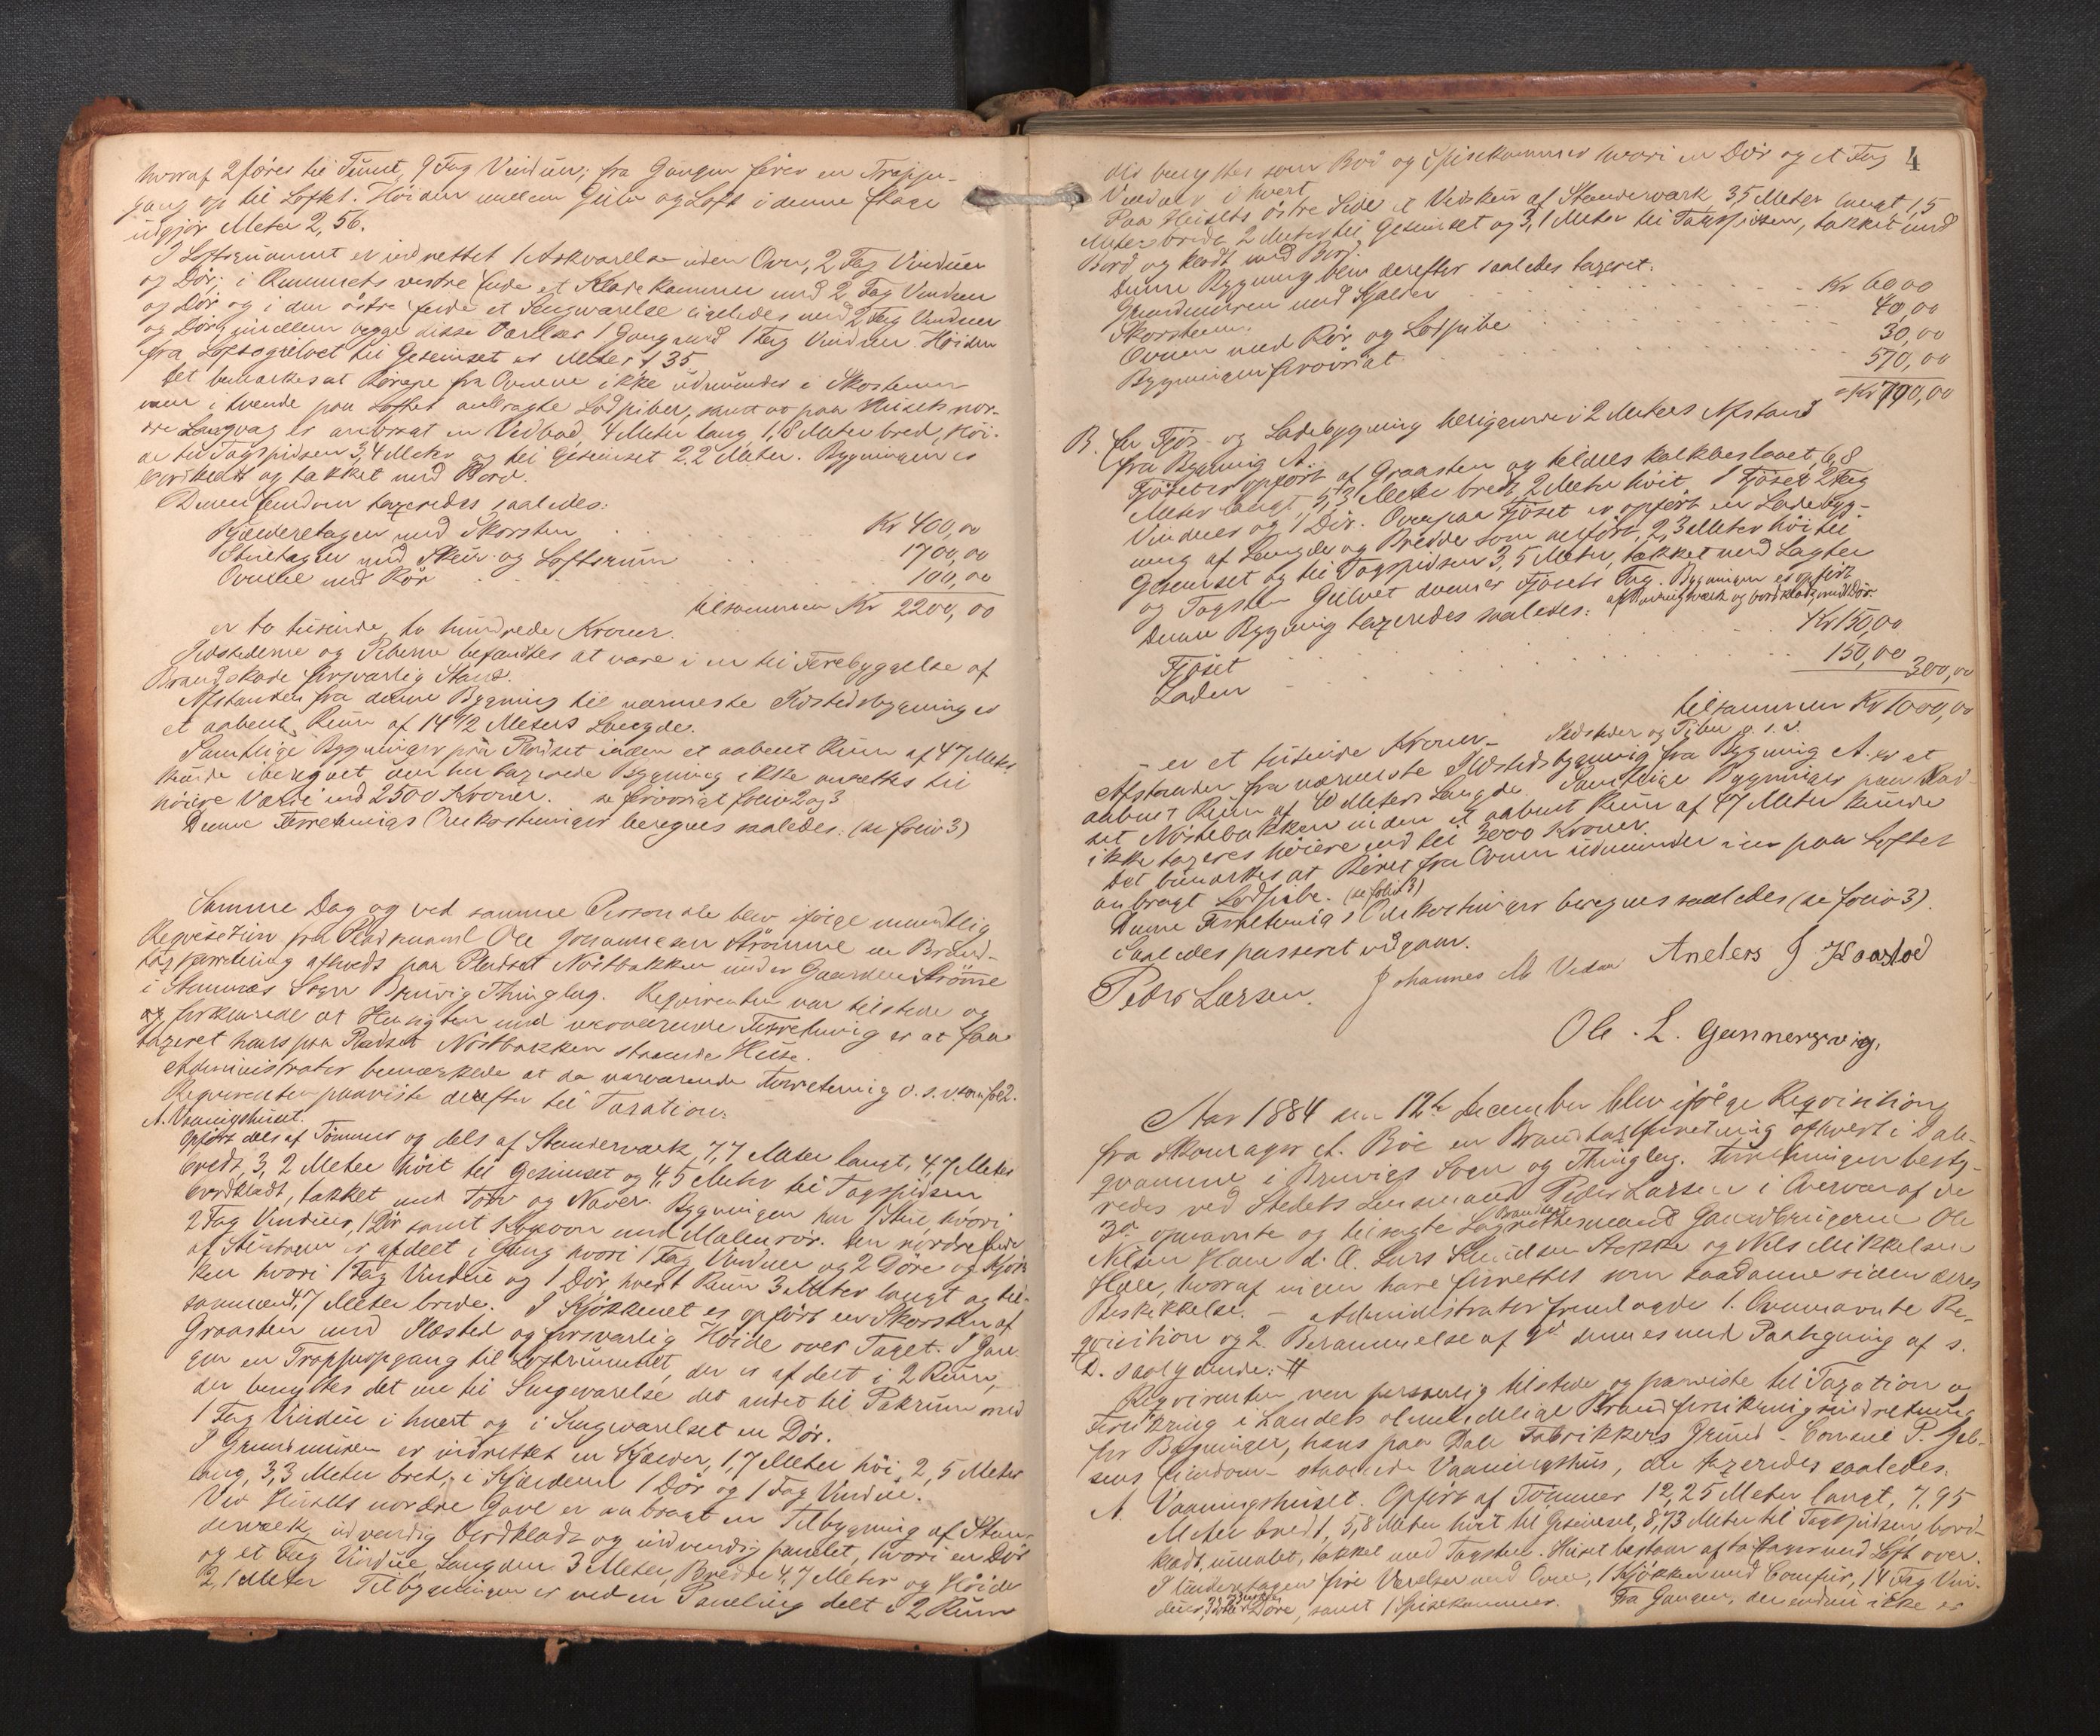 hvoraf 2 fører til Tunet, 9 Fag Vinduer; fra Gangen fører en Trappe-
gang op til Loftet. Høiden mellem Gulv og Loft i denne Etage
udgjør Meter 2,56.
I Loftsrummet er indrettet 1 Arkværelse uden Ovn, 2 Fag Vinduer
og Dør; i Rummets vestre Ende et Klædekammer med 2 Fag Vinduer
og Dør og i den østre Ende et Sengeværelse ligeledes med 2 Fag Vinduer
og Dør; imellem begge disse Værelser 1 Gang med 1 Fag Vindue. Høiden
fra Loftsgulvet til Gesimset er Meter 1,35.
Det bemærkes at Rørene fra Ovnene ikke udmunder i Skorstenen
men i tvende paa Loftet anbragte Lodpiber, samt at paa Husets nor-
dre Langvæg er anbragt en Vedbod, 4 Meter lang, 1,8 Meter bred, Høi-
de til Tagspidsen 3,4 Meter og til Gesimset 2,2 Meter. Bygningen er
bordklædt og takket med Bord.
Denne Eiendom taxeredes saaledes:
Kjælderetagen med Skorsten Kr 400,00
Stuetagen med Skur og Loftsrum 1700,00
Ovnene med Rør 100,00
tilsammen Kr 2200,00
er to tusinde, to hundrede Kroner.
Ildstederne og Piberne befandtes at være i en til Forebyggelse af
Brandskade forsvarlig Stand.
Afstanden fra denne Bygning til nærmeste Ildstedsbygning er
et aabent Rum af 14 1/2 Meters Længde.
Samtlige Bygninger paa Pladset inden et aabent Rum af 47 Meter
kunde iberegnet den her taxerede Bygning ikke ansættes til
høiere Værdi end 2500 Kroner. se forøvrigt folio 2 og 3
Denne Forretnings Omkostninger beregnes saaledes: (se folio 3)
Samme Dag og ved samme Personale blev ifølge mundtlig
Reqvisition fra Pladsmand Ole Johannesen Strømme en Brand-
taxtforretning afholdt paa Pladset Nøstbakken under Gaarden Strømme
i Stamnæs Sogn Bruvig Thinglag. Reqvirenten var tilstede og
og forklarede at Hensigten med nærværende Forretning er at faa
taxeret hans paa Pladset Nøstbakken staaende Huse.
Administrator bemærkede at da nærværende Forretning o.s.v. som fol 2.
Reqvirenten paaviste derefter til Taxation:
A. Vaaningshuset.
Opført dels af Tømmer og dels af Standerværk, 7,7 Meter langt, 4,7 Meter
bredt, 3,2 Meter høit til Gesimset og 4,5 Meter til Tagspidsen
bordklædt, takket med Torv og Næver. Bygningen har 1 Stue hvori
2 Fag Vinduer, 1 Dør samt Kogeovn med Malmrør. Den nordre Ende
af Stuetagen er afdelt i Gang hvori 1 Fag Vinduer og 2 Døre og Kjøk-
ken hvori 1 Fag Vindue og 1 Dør hvert Rum 3 Meter langt og til-
sammen 4,7 Meter brede. I Kjøkkenet er opført en Skorsten af
Graasten med Ildsted og forsvarlig Høide over Taget. I Gan-
gen en Trappeopgang til Loftrummet, der er afdelt i 2 Rum,
der benyttes det ene til Sengeværelse det andet til Pakrum med
1 Fag Vindue i hvert og i Sengeværelset en Dør.
I Grundmuren er indrettet en Kjælder, 1,7 Meter høi, 2,5 Meter
lang, 3,3 Meter bred, i Kjælderen 1 Dør og 1 Fag Vindue.
Ved Husets nordre Gavl er anbragt en Tilbygning af Stan-
derværk udvendig bordklædt og indvendig panelet, hvori en Dør
og et Fag Vindue, Længden 3 Meter, Bredde 4,7 Meter og Høide
2,1 Meter Tilbygningen er ved en Paneling delt i 2 Rum
4
der benyttes som Bod og Spisekammer hvori en Dør og et Fag
Vindue i hvert
Paa Husets østre Side et Vedskur af Standerværk, 3,5 Meter langt, 1,5
Meter bredt, 2 Meter til Gesimset og 3,1 Meter til Tagspidsen, takket med
Bord og klædt med Bord.
Denne Bygning blev derefter saaledes taxeret:
Grundmuren med Kjælder Kr 60,00
Skorstenen 40,00
Ovnen med Rør og Lodpibe 30,00
Bygningen forøvrigt 570,00
Kr 700,00
B. En Fjøs- og Ladebygning beliggende i 2 Meters Afstand
fra Bygning A.
Fjøset er opført af Graasten og tildels kalkbeslaaet, 6,8
Meter langt, 5,3 Meter bredt, 2 Meter høit. I Fjøset 2 Fag
Vinduer og 1 Dør. Ovenpaa Fjøset er opført en Ladebyg-
ning af Længde og Bredde som anført, 2,3 Meter høi til
Gesimset og til Tagspidsen 3,5 Meter, takket med Lagter
og Tagsten Gulvet danner Fjøsets Tag. Bygningen er opført
af Bindingsværk og bordklædt, med Dør.
Denne Bygning taxeredes saaledes:
Fjøset Kr 150,00
Laden 150,00 300,00
tilsammen Kr 1000,00
er et tusinde Kroner. Ildsteder og Piber o.s.v.
Afstanden fra nærmeste Ildstedsbygning fra Bygning A. er et
aabent Rum af 40 Meters Længde. Samtlige Bygninger paa Plad-
set Nøstebakken inden et aabent Rum af 47 Meter kunde
ikke taxeres høiere end til 3000 Kroner.
Det bemærkes at Røret fra Ovnen udmunder i en paa Loftet
anbragt Lodpibe. (se folio 3)
Denne Forretnings Omkostninger beregnes saaledes (se folio 3).
Saaledes passeret vidner.
Peder Larsen. Johannes M Vedaa Anders J Kaastad
Ole. L. Gunnersveig.
Aar 1884 den 12te December blev ifølge Reqvisition
fra Skomager A. Bøe en Brandtaxtforretning afholdt i Dale-
qvamme i Bruvigs Sogn og Thinglag. Forretningen besty-
redes ved Stedets Lensmand Peder Larsen i Overvær af de
3de opnævnte og tilsagte Lagrettesmænd Gaardbrugerne Ole
Brandtax
Nilsen Hane d. Æ. Lars Knudsen Stokke og Nils Mikkelsen
Helle, hvoraf ingen have forrettet som saadanne siden deres
Beskikkelse. – Administrator fremlagde 1. Ovennævnte Re-
qvisition og 2. Berammelse af 9de dennes med Paategning af s.
D. saalydende: #
Reqvirenten var personlig tilstede og paaviste til Taxation og
Forsikring i Landets almindelige Brandforsikringsindretning
for Bygninger, hans paa Dale Fabrikkers Grund – Consul P. Jeb-
sens Eiendom – staaende Vaaningshus, der taxeredes saaledes:
A. Vaaningshuset. Opført af Tømmer 12,25 Meter langt, 7,95
Meter bredt, 5,8 Meter høit til Gesimset, 8,73 Meter til Tagspidsen, bord-
klædt, umalet, takket med Tagsten. Huset bestaar af to Etager med Loft over.
I Underetagen fire Værelser med Ovn, 1 Kjøkken med Comfur, 14 Fag Vin-
duer, Døre, samt 1 Spisekammer. Fra Gangen, der endnu ikke er